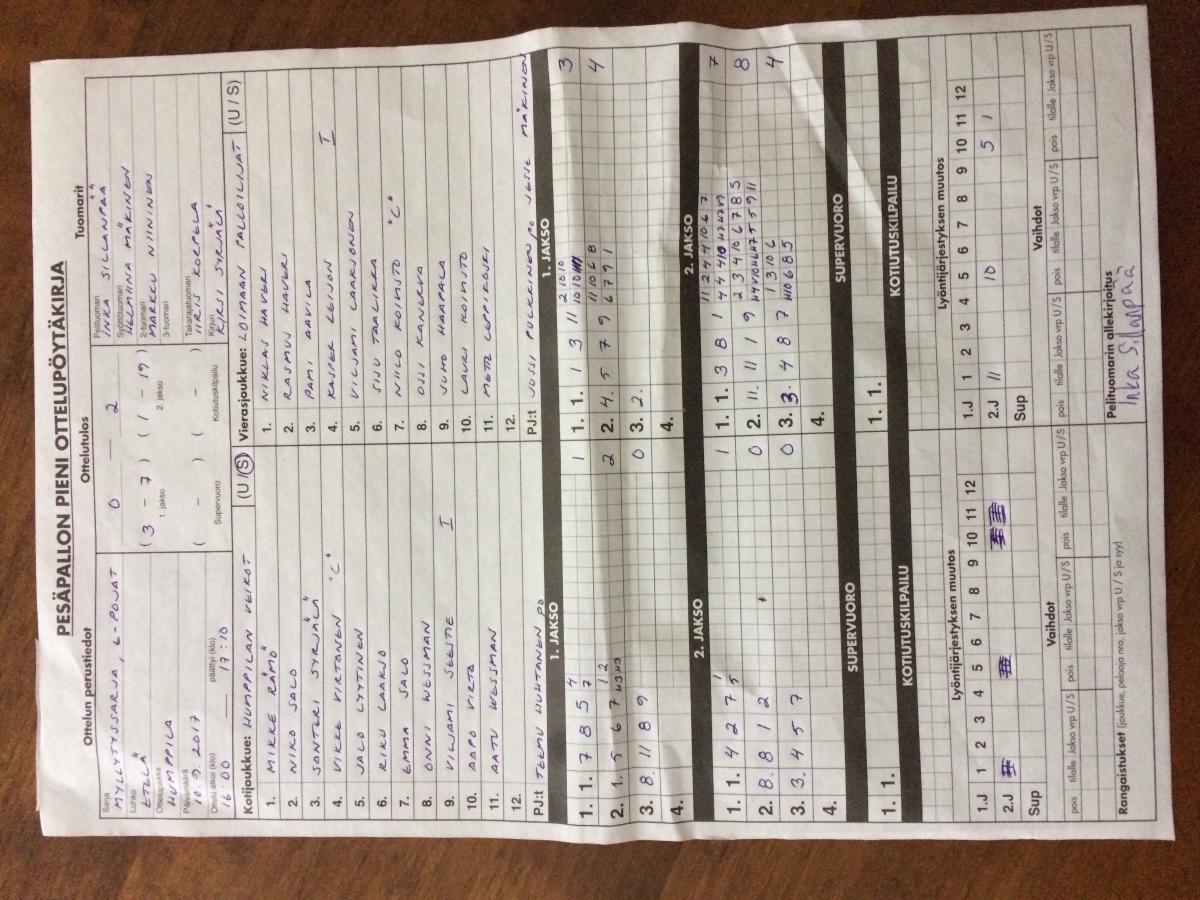 PESÄPALLON PIENI OTTELUPÖYTÄKIRJA
Ottelun perustiedot
Sarja
MYLLYTYSSARJA, E-POJAT
Lohko
ETELÄ
Ottelupaikka
HUMPPILA
Päivämäärä
10.9.2017
Ottelu alkoi (klo) päättyi (klo)
16:00 17:10
Ottelutulos
0 — 2
(3 - 7) (1 - 19)
1. jakso 2. jakso
( - ) ( - )
Supervuoro Kotiutuskilpailu
Tuomarit
Pelituomari
INKA SILLANPÄÄ
Syöttötuomari
HELMIINA MÄKINEN
2-tuomari
MARKKU NIININEN
3-tuomari
Takarajatuomari
IIRIS KORPELA
Kirjuri
KIRSI SYRJÄLÄ
Kotijoukkue: HUMPPILAN VEIKOT (U/S)
1. MIKKE RÄMÖ
2. NIKO SALO
3. SANTERI SYRJÄLÄ
4. VIKKE VIRTANEN "C"
5. JALO LYYTINEN
6. RIKU LAAKSO
7. EMMA SALO
8. ONNI WESSMAN
9. VILJAMI SEESTE I
10. AAPO VIRTA
11. AATU WESSMAN
12.
PJ:t TEEMU HUHTANEN PO
Vierasjoukkue: LOIMAAN PALLOILIJAT (U/S)
1. NIKLAS HAVERI
2. RASMUS HAVERI
3. PAMI AAVILA
4. KASPER LEIJON I
5. VILJAMI LAAKSONEN
6. SISU TAALIKKA
7. NIILO KOIVISTO "C"
8. OSSI KANERVA
9. JUHO HAAPALA
10. LAURI KOIVISTO
11. METE LEPPIKOSKI
12.
PJ:t JUSSI PULKKINEN PO JESSE MÄKINEN
1. JAKSO
1. 1. 7 8 5 7 4 1
2. 1. 5 6 7 H3 H3 1 2 2
3. 8. 11 8 9 0
4.
1. JAKSO
1. 1. 1 3 11 10 10 2 10 10 3
2. 4. 5 7 9 6 7 9 1 11 10 6 8 4
3. 2.
4.
2. JAKSO
1. 1. 4 2 7 5 1 1
2. 8. 8 1 2 0
3. 3. 4 5 7 0
4.
2. JAKSO
1. 1. 3 8 1 4 4 4 10 H7 H7 H7 11 2 4 4 10 6 7 7
2. 11. 11 1 9 H4 V10 H6 H7 5 5 9 11 2 3 4 10 6 7 8 5 8
3. 3. 4 8 7 H10 6 8 5 1 3 10 6 4
4.
SUPERVUORO
1. 1.
KOTIUTUSKILPAILU
SUPERVUORO
1. 1.
KOTIUTUSKILPAILU
Lyöntijärjestyksen muutos
1 2 3 4 5 6 7 8 9 10 11 12
1.J
2.J
Sup
Vaihdot
pois tilalle Jakso vrp U/S pois tilalle Jakso vrp U/S pois tilalle Jakso vrp U/S
Lyöntijärjestyksen muutos
1 2 3 4 5 6 7 8 9 10 11 12
1.J
2.J 11 10 5 1
Sup
Vaihdot
pois tilalle Jakso vrp U/S pois tilalle Jakso vrp U/S pois tilalle Jakso vrp U/S
Rangaistukset (joukkue, pelaaja nro, jakso vrp U / S ja syy)
Pelituomarin allekirjoitus
Inka Sillanpää